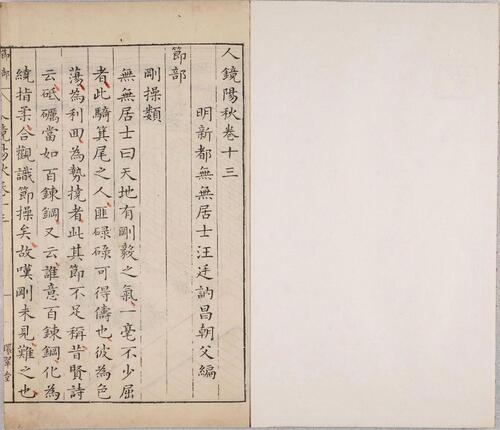 人鏡陽秋卷十三
明新都無無居士汪廷訥昌朝父編
節部
剛操類
無無居士曰天地有剛毅之氣一毫不少屈
者此騎箕尾之人匪碌碌可得儔也彼為色
蕩為利回為勢撓者此其節不足稱昔賢詩
云砥礪當如百鍊鋼又云誰意百鍊鋼化為
繞指柔合觀識節操矣故嘆剛未見難之也
節部
人鏡陽秋卷十三
環翠堂